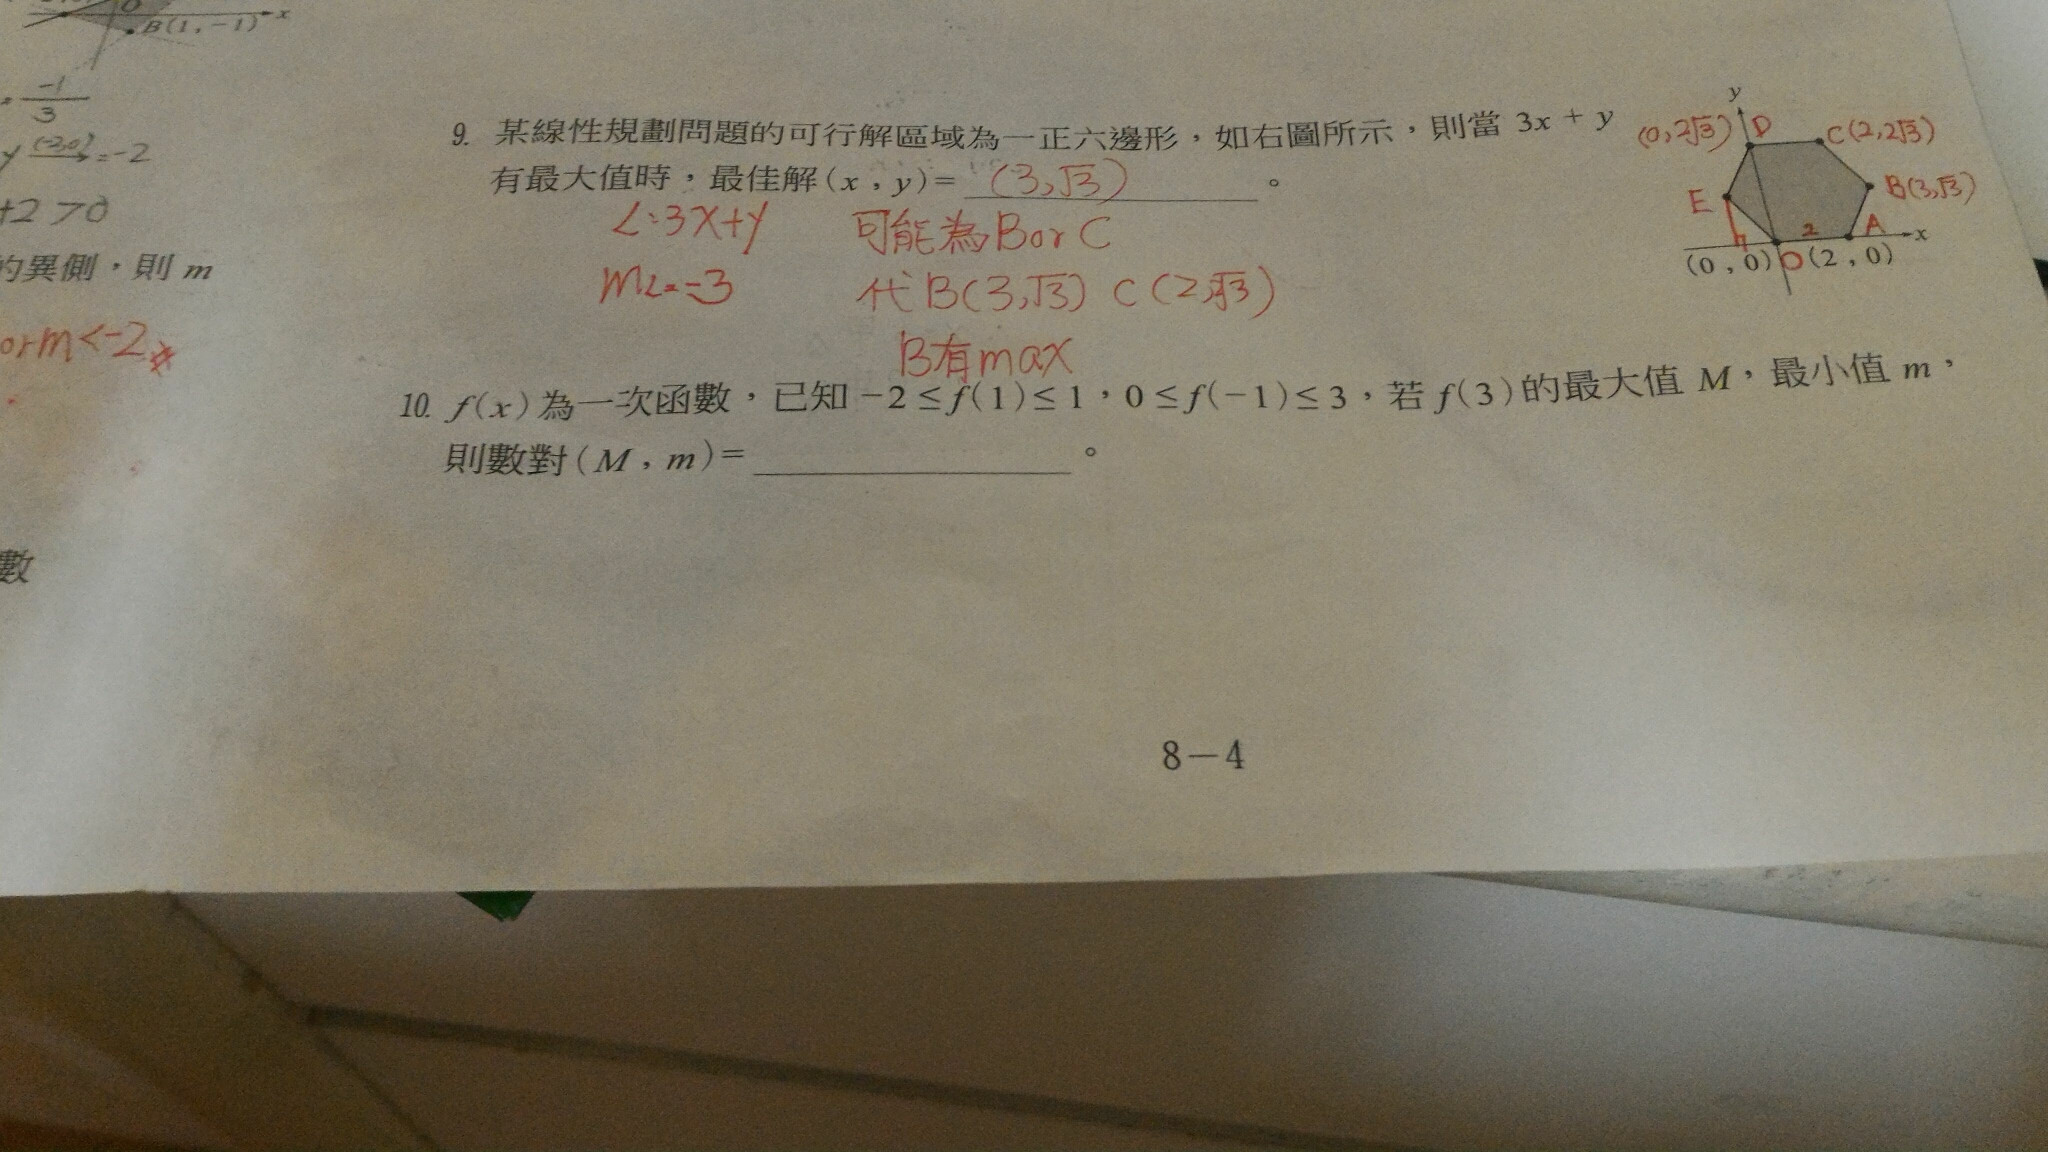 B(1,-1)
x
-1
3
y (-2,0) =-2
+2>0
的異側，則 m
or m<-2
數
9. 某線性規劃問題的可行解區域為一正六邊形，如右圖所示，則當 3x + y
有最大值時，最佳解(x，y)= (3,√3) 。
L:3x+y 可能為B or C
mL=-3 代B(3,√3) C(2,√3)
B有max
y
(0,2√3) D C(2,2√3)
E B(3,√3)
2 A x
(0，0) O (2，0)
10. f(x)為一次函數，已知 -2≤f(1)≤1，0≤f(-1)≤3，若 f(3)的最大值 M，最小值 m，
則數對(M，m)= 。
8－4